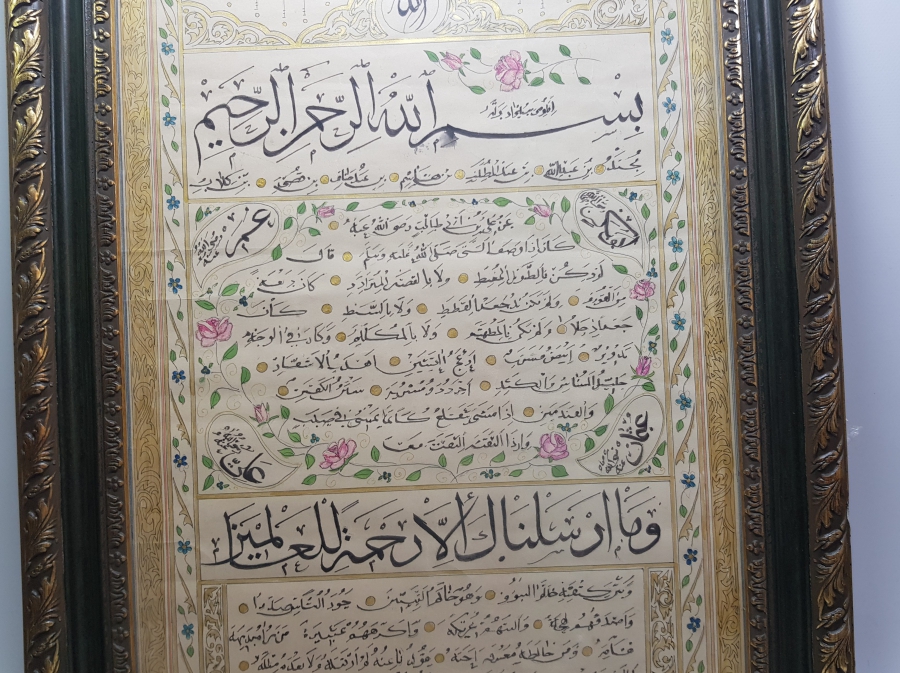 الله
بسم الله الرحمن الرحيم
محمد بن عبد الله بن عبد المطلب بن هاشم بن عبد مناف بن قصي بن كلاب
ابوبكر
عمر
عن علي بن ابي طالب رضي الله عنه
كان اذا وصف النبي صلى الله عليه وسلم قال
لم يكن بالطويل الممغط ولا بالقصير المتردد كان ربعة
من القوم ولم يكن بالجعد القطط ولا بالسبط كان
جعدا رجلا ولم يكن بالمطهم ولا بالمكلثم وكان في الوجه
تدوير ابيض مشرب ادعج العينين اهدب الاشفار
جليل المشاش والكتد اجرد ذو مسربة شثن الكفين
والقدمين اذا مشى تقلع كانما يمشي في صبب
واذا التفت التفت معا
عثمان
علي
وما ارسلناك الا رحمة للعالمين
وبين كتفيه خاتم النبوة وهو خاتم النبيين اجود الناس صدرا
واصدقهم لهجة والينهم عريكة واكرمهم عشيرة من رآه بديهة
هابه ومن خالطه معرفة احبه يقول ناعته لم ار قبله ولا بعده مثله